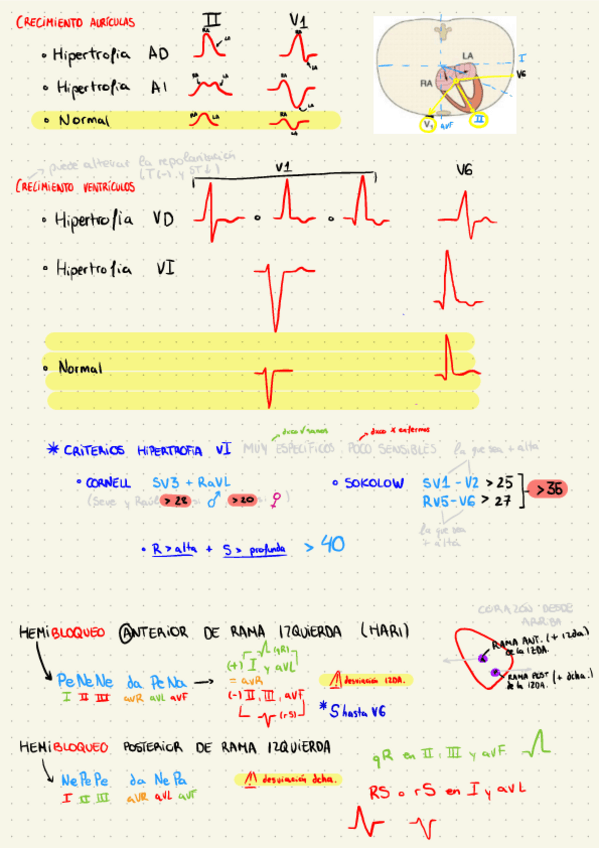 CRECIMIENTO AURÍCULAS II V1
• Hipertrofia AD RA LA RA LA
• Hipertrofia AI RA LA RA LA
• Normal RA LA RA LA
LA
RA
I
V6
V1 aVF II
puede alterar la repolarización
(T(-) y ST↓)
CRECIMIENTO VENTRÍCULOS V1 V6
• Hipertrofia VD o o
• Hipertrofia VI
• Normal
doco √ sanos doco x enfermos
* CRITERIOS HIPERTROFIA VI MUY ESPECÍFICOS POCO SENSIBLES la que sea + alta
• CORNELL SV3 + RaVL
> 28 ♂ > 20 ♀
• SOKOLOW SV1 - V2 > 25
RV5 - V6 > 27
> 35
la que sea
+ alta
• R > alta + S > profunda > 40
HEMIBLOQUEO ANTERIOR DE RAMA IZQUIERDA (HARI)
PeNeNe da PeNa →
I II III aVR aVL aVF
(qR)
(+) I y aVL
= aVR
(-) II, III, aVF
(rS)
⚠ desviación IZDA.
* S hasta V6
CORAZÓN DESDE
ARRIBA
RAMA ANT. (+ izda.)
de la IZDA.
RAMA POST (+ dcha.)
de la IZDA.
HEMIBLOQUEO POSTERIOR DE RAMA IZQUIERDA
NePePe da NePa
I II III aVR aVL aVF
⚠ desviación dcha.
qR en II, III y aVF
RS o rS en I y aVL